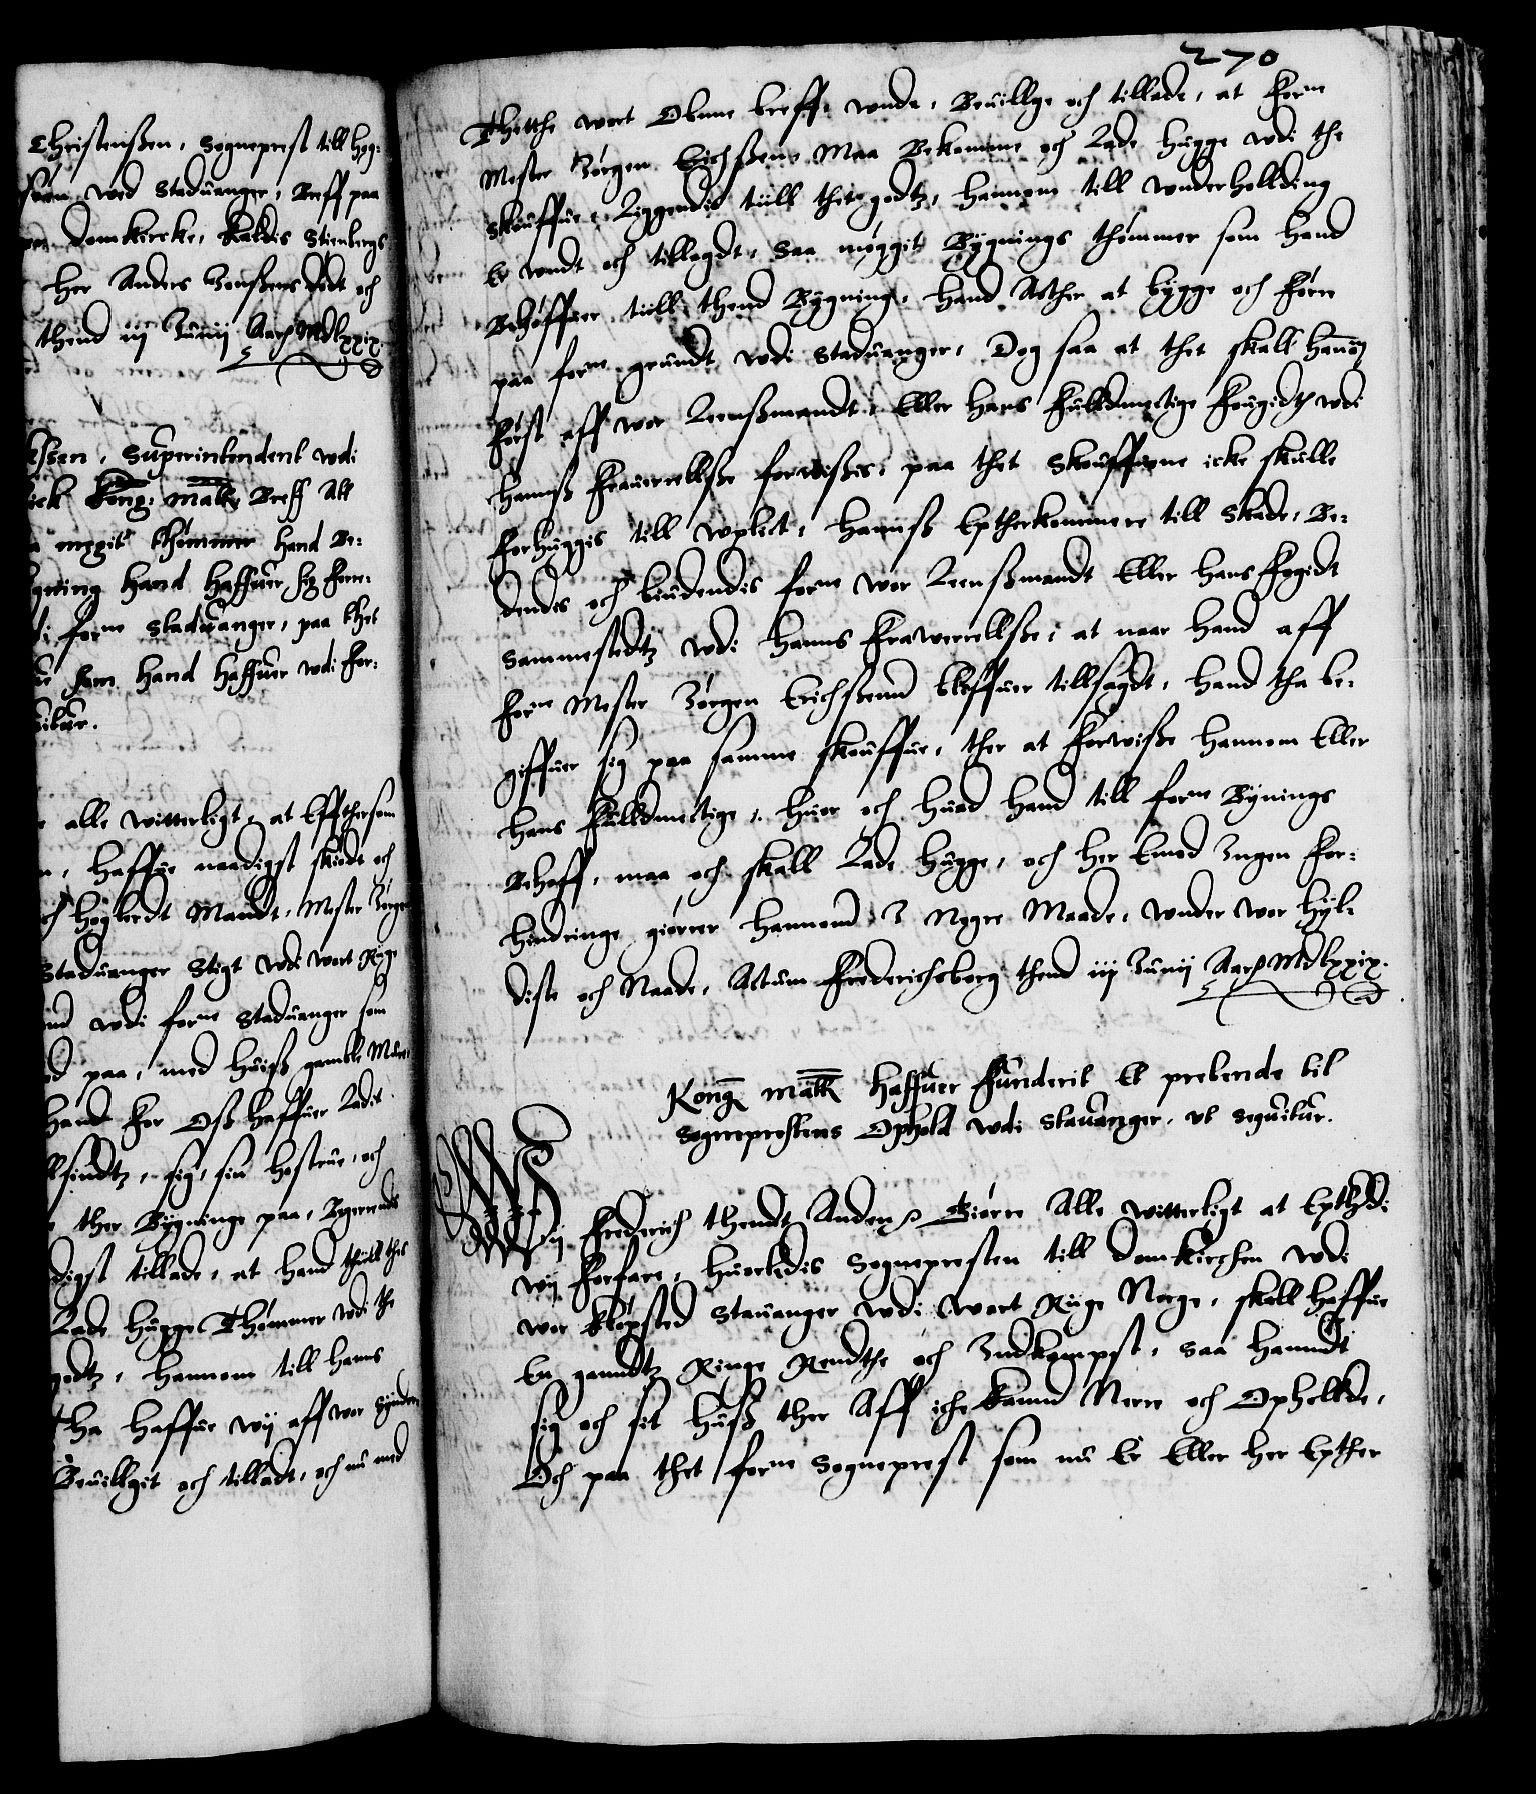 Christenßen, Sogneprest till Høg-
wed Staduanger, Breff paa
domkircke, Kaldis Stienbergs
her Anders Jenßens dødt och
thend iij Junij Aar MDlxxix.
Superintendent wdi
fick Kong: Matts Breff Att
megit thømmer hand Be-
hand haffuer sig fore-
forne Staduanger, paa thet
som hand haffuer wdi for-
alle witterligt, at Effthersom
haffue naadigst skiødt och
høglerdt Mandt, Mester Jørgen
Staduanger Stigt wdi wort Rige
wdi forne Staduanger som
paa, med huiß gamble Mure
hand for Oß haffuer Ladit
sig, sin hostrue, och
ther Bygninge paa, Begerendis
tillade, at hand thiill thet
Lade hugge Thømmer wdi the
godtz, hannom till hans
Tha haffue wij aff wor synder-
Beuillgit och tilladt, och nu med
270
Thette wort Obnne breff, wnde, Beuillge och tillade, at forne
Mester Jørgen Erichßenn Maa Bekomme och Lade hugge wdi the
skouffue, Liggendis tiill thet godtz, hannom till wnderholding
Er wndt och tillagdt, saa møggit Bygnings thømmer som hand
Behøffuer tiill thend Bygning, hand Acther at bygge och føre
paa forne grundt wdi Staduanger, Dog saa at thet skall hannom
først aff wor Leenßmandt, Eller hans fuldmectige fougidtz wdi
hannß frauerrellße foruißis, paa thet Skouffuene icke skulle
forhuggis till wplict, hannß Eptherkommere till skade, Be-
dendes och biudendis forne wor Leenßmandt Eller hans fogidt
sammestedtz wdi hanns frawerrellße, at naar hand aff
forne Mester Jørgen Erichßenn bliffuer tillsagdt, hand tha be-
giffuer sig paa samme skouffue, ther at forwiße hannom Eller
hans fuldmectige, huor och huad hand till forne Bygnings
Behoff, maa och skall Lade hugge, och her Emod Ingen for-
hindringe giørrer hannom I Nogre Maade, wnder wor hyl-
diste och Naade, Actum Frederichsborg thend iij Junij Aar MDlxxix.
Kong Matt haffuer funderit Et prebende til
Sogneprestens Ophold wdi Stauanger, vt sequitur.
Wij Frederich thendt Anden Giørre Alle witterligt at Epthrdi
wij forfare, huorledis Sognepresten till domkirchen wdi
wor kiøpsted Stauanger wdi wort Rige Norge, skall haffue
En gandtz Ringe Rendthe och Indkompst, saa hanndt
sig och sit huß ther Aff iche kannd Nere och Opholde,
Och paa thet forne Sogneprest som nu Er Eller her Epther